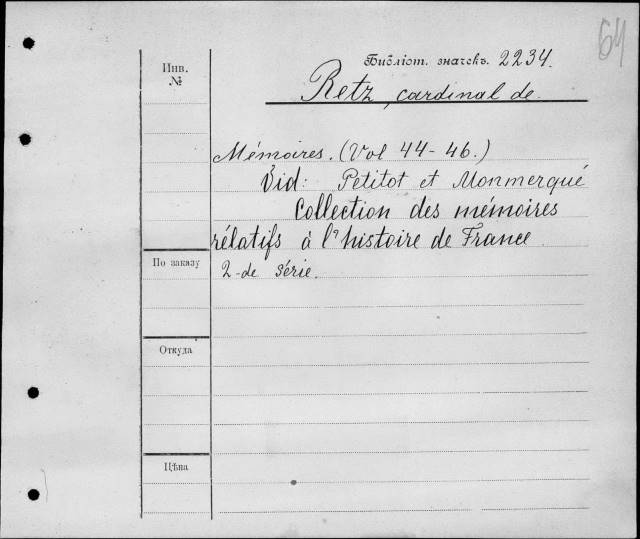 64
Библіот. значекъ. 2234.
Инв.
№
Retz, cardinal de.
Mémoires. (Vol 44-46.)
Vid: Petitot et Monmerqué
Collection des mémoires
rélatifs à l'histoire de France.
По заказу
2-de série.
Откуда
Цѣна